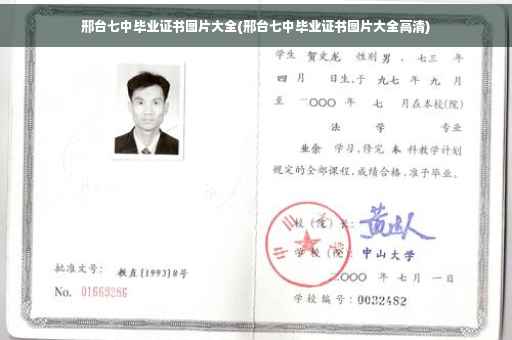 邢台七中毕业证书图片大全(邢台七中毕业证书图片大全高清)
学生 贺文龙 性别 男，七三 年
四 月 日生，于 九七 年 九 月
至 二〇〇〇 年 七 月在本校(院)
法 学 专业
业余 学习，修完 本 科教学计划
规定的全部课程，成绩合格，准予毕业。
校(院)长：
学校(院)：中山大学
二〇〇〇 年 七 月 一 日
学校编号：0032482
批准文号：教直(1993)8号
No. 01669286